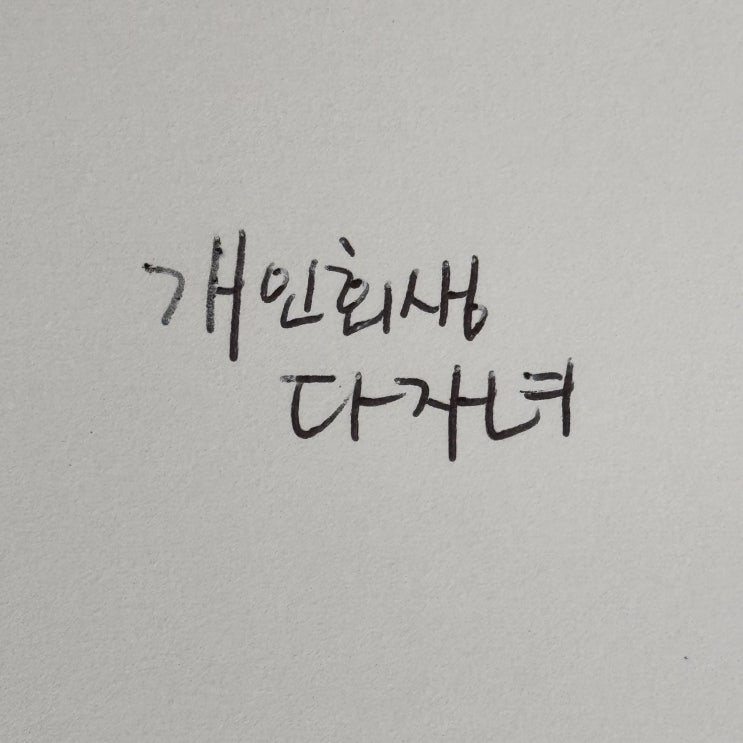 개인회생
다자녀